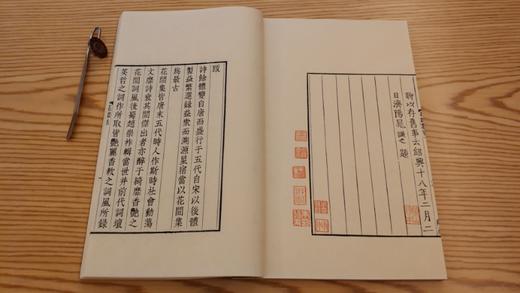 聊以存舊事云紹興十八年二月二
日濟陽晁謙之題
跋
詩餘體變自唐而盛行于五代自宋以後體
製益繁選録益衆而溯源星宿當以花間集
爲最古
花間集皆唐末五代時人作斯時社會動蕩
文靡詩衰其間傑出者亦醉于綺靡香艷之
花間詞風後蜀趙崇祚輯當世并前代詞壇
英哲之詞作所取皆艷麗香軟之詞風所録